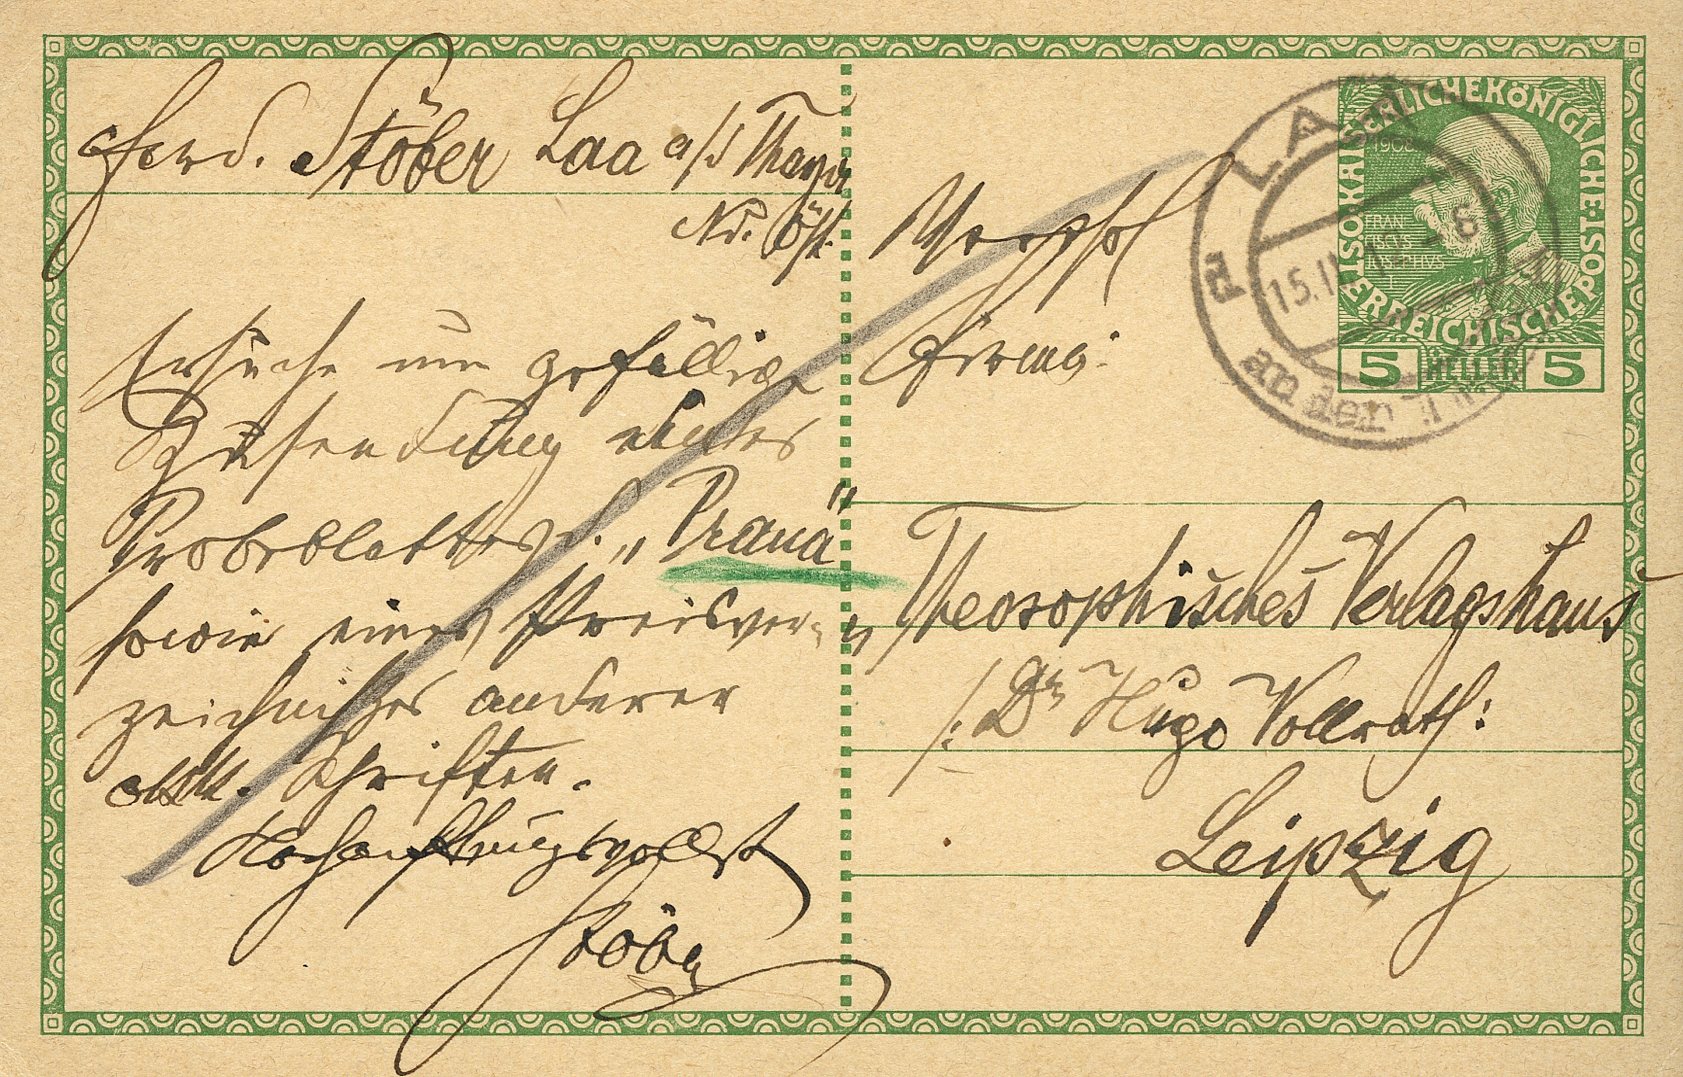 Ferd. Stöber Laa a/d Thaya
Nd. Öst.
Ersuche um gefällige
Zusendung eines
Probeblattes d. „Prana“
sowie eines Preisver-
zeichnisses anderer
Schriften.
Hochachtungsvollst
Stöber
Firma:
„Theosophisches Verlagshaus
/: Dr Hugo Vollrath:
Leipzig
LAA
an der
15.II
KAISERLICHEKÖNIGLICHE·ÖSTERREICHISCHEPOST
1908
FRAN
CISCVS
IOSEPHVS
5 HELLER 5